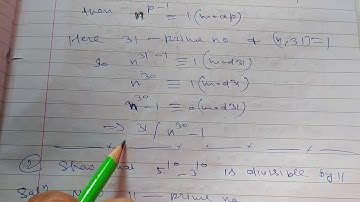 then n^{p-1} ≡ 1 (mod p)
Here 31 - prime no & (n, 31) = 1
So n^{31-1} ≡ 1 (mod 31)
n^{30} ≡ 1 (mod 31)
n^{30} - 1 ≡ 0 (mod 31)
⇒ 31 / n^{30} - 1
② Show that 5^{10} - 3^{10} is divisible by 11
Sol^n prime no